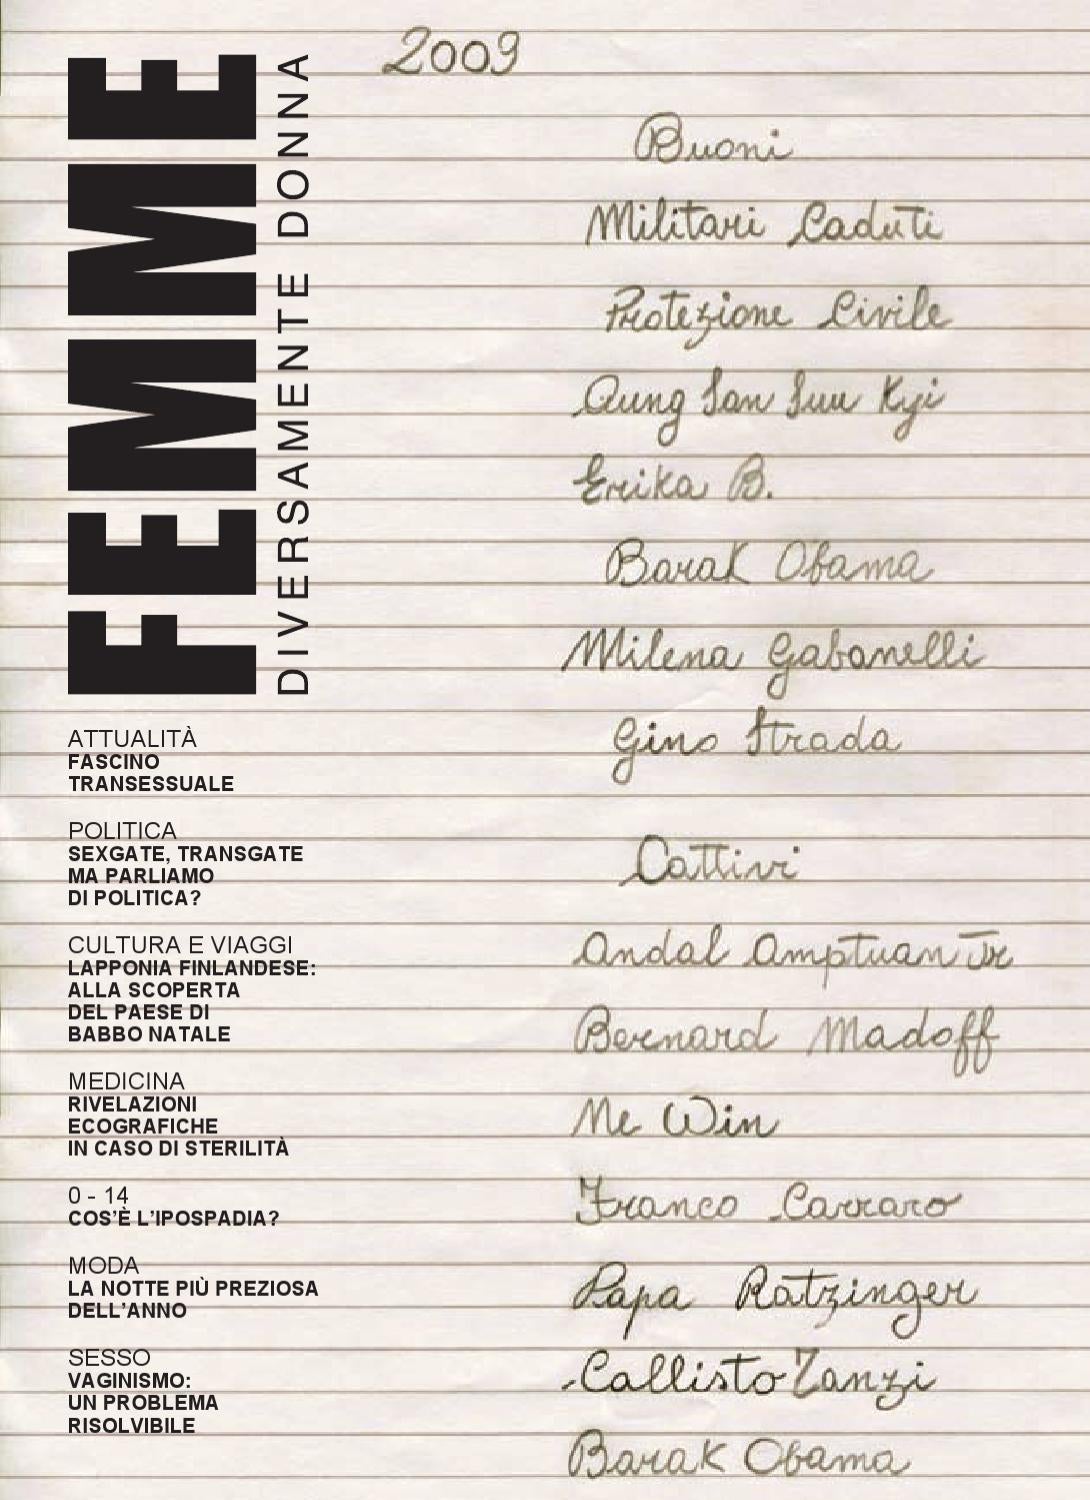 FEMME
DIVERSAMENTE DONNA
ATTUALITÀ
FASCINO
TRANSESSUALE
POLITICA
SEXGATE, TRANSGATE
MA PARLIAMO
DI POLITICA?
CULTURA E VIAGGI
LAPPONIA FINLANDESE:
ALLA SCOPERTA
DEL PAESE DI
BABBO NATALE
MEDICINA
RIVELAZIONI
ECOGRAFICHE
IN CASO DI STERILITÀ
0 - 14
COS'È L'IPOSPADIA?
MODA
LA NOTTE PIÙ PREZIOSA
DELL'ANNO
SESSO
VAGINISMO:
UN PROBLEMA
RISOLVIBILE
2009
Buoni
Militari Caduti
Protezione Civile
Aung San Suu Kyi
Erika B.
Barak Obama
Milena Gabanelli
Gino Strada
Cattivi
Andal Amptuan Jr
Bernard Madoff
Ne Win
Franco Carraro
Papa Ratzinger
Callisto Tanzi
Barak Obama